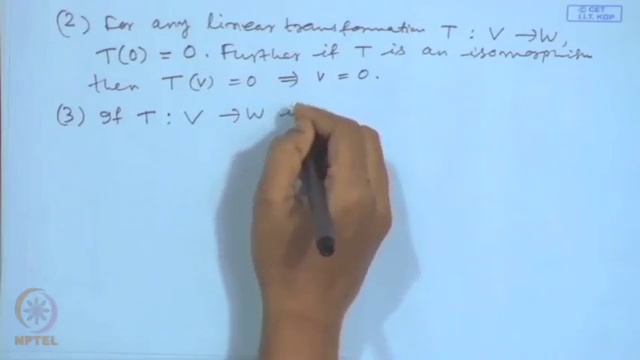 © CET
I.I.T. KGP
(2) For any linear transformation T : V → W,
T(0) = 0. Further if T is an isomorphism
then T(v) = 0 ⇒ v = 0.
(3) If T : V → W
NPTEL